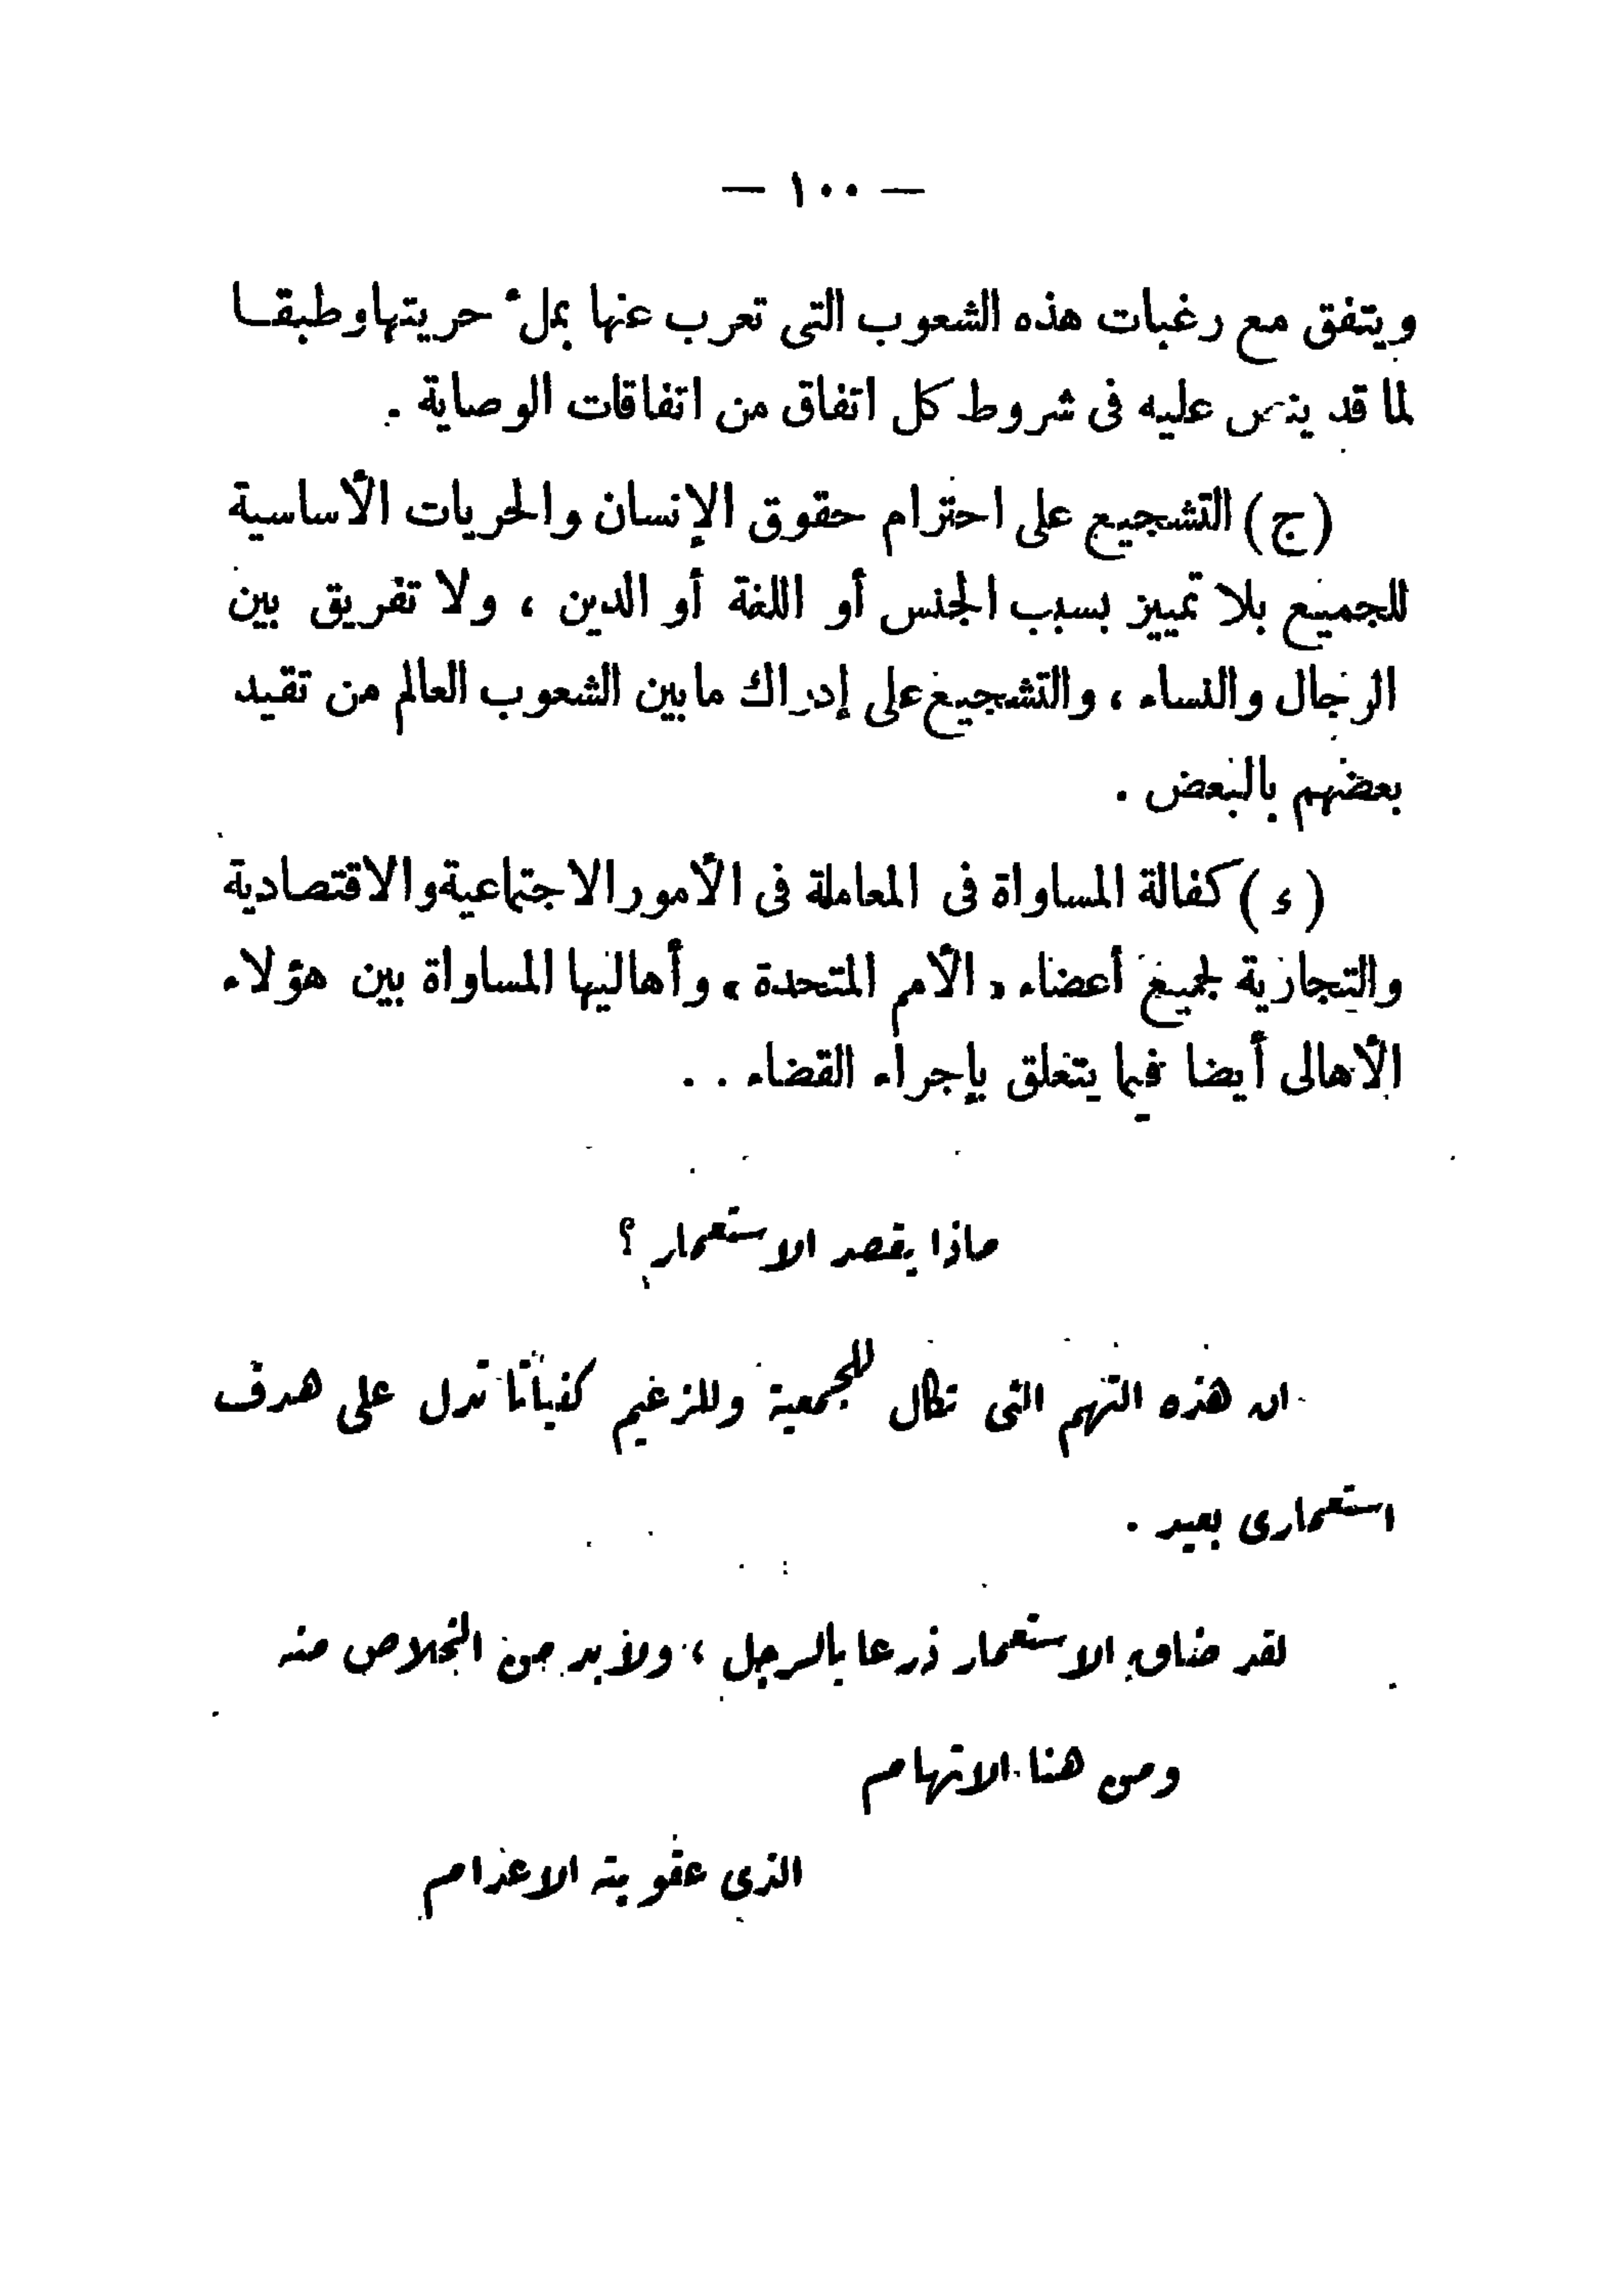 — ١٠٠ —
ويتفق مع رغبات هذه الشعوب التى تعرب عنها بملء حريتها وطبقا
لما قد ينص عليه فى شروط كل اتفاق من اتفاقات الوصاية .
(ج) التشجيع على احترام حقوق الإنسان والحريات الأساسية
للجميع بلا تمييز بسبب الجنس أو اللغة أو الدين ، ولا تفريق بين
الرجال والنساء ، والتشجيع على إدراك ما بين الشعوب العالم من تقيد
بعضهم بالبعض .
(ء) كفالة المساواة فى المعاملة فى الأمور الاجتماعية والاقتصادية
والتجارية لجميع أعضاء « الأمم المتحدة » وأهاليها المساواة بين هؤلاء
الأهالى أيضا فيما يتعلق بإجراء القضاء . .
ماذا يقصد الاستعمار ؟
ان هذه التهم التى تكال للجمعية وللزعيم تدل على هدف
استعمارى بعيد .
لقد ضاق الاستعمار ذرعا بالرجل ، ولابد من الخلاص منه
ومن هنا الاتهام
الذى عقوبته الاعدام